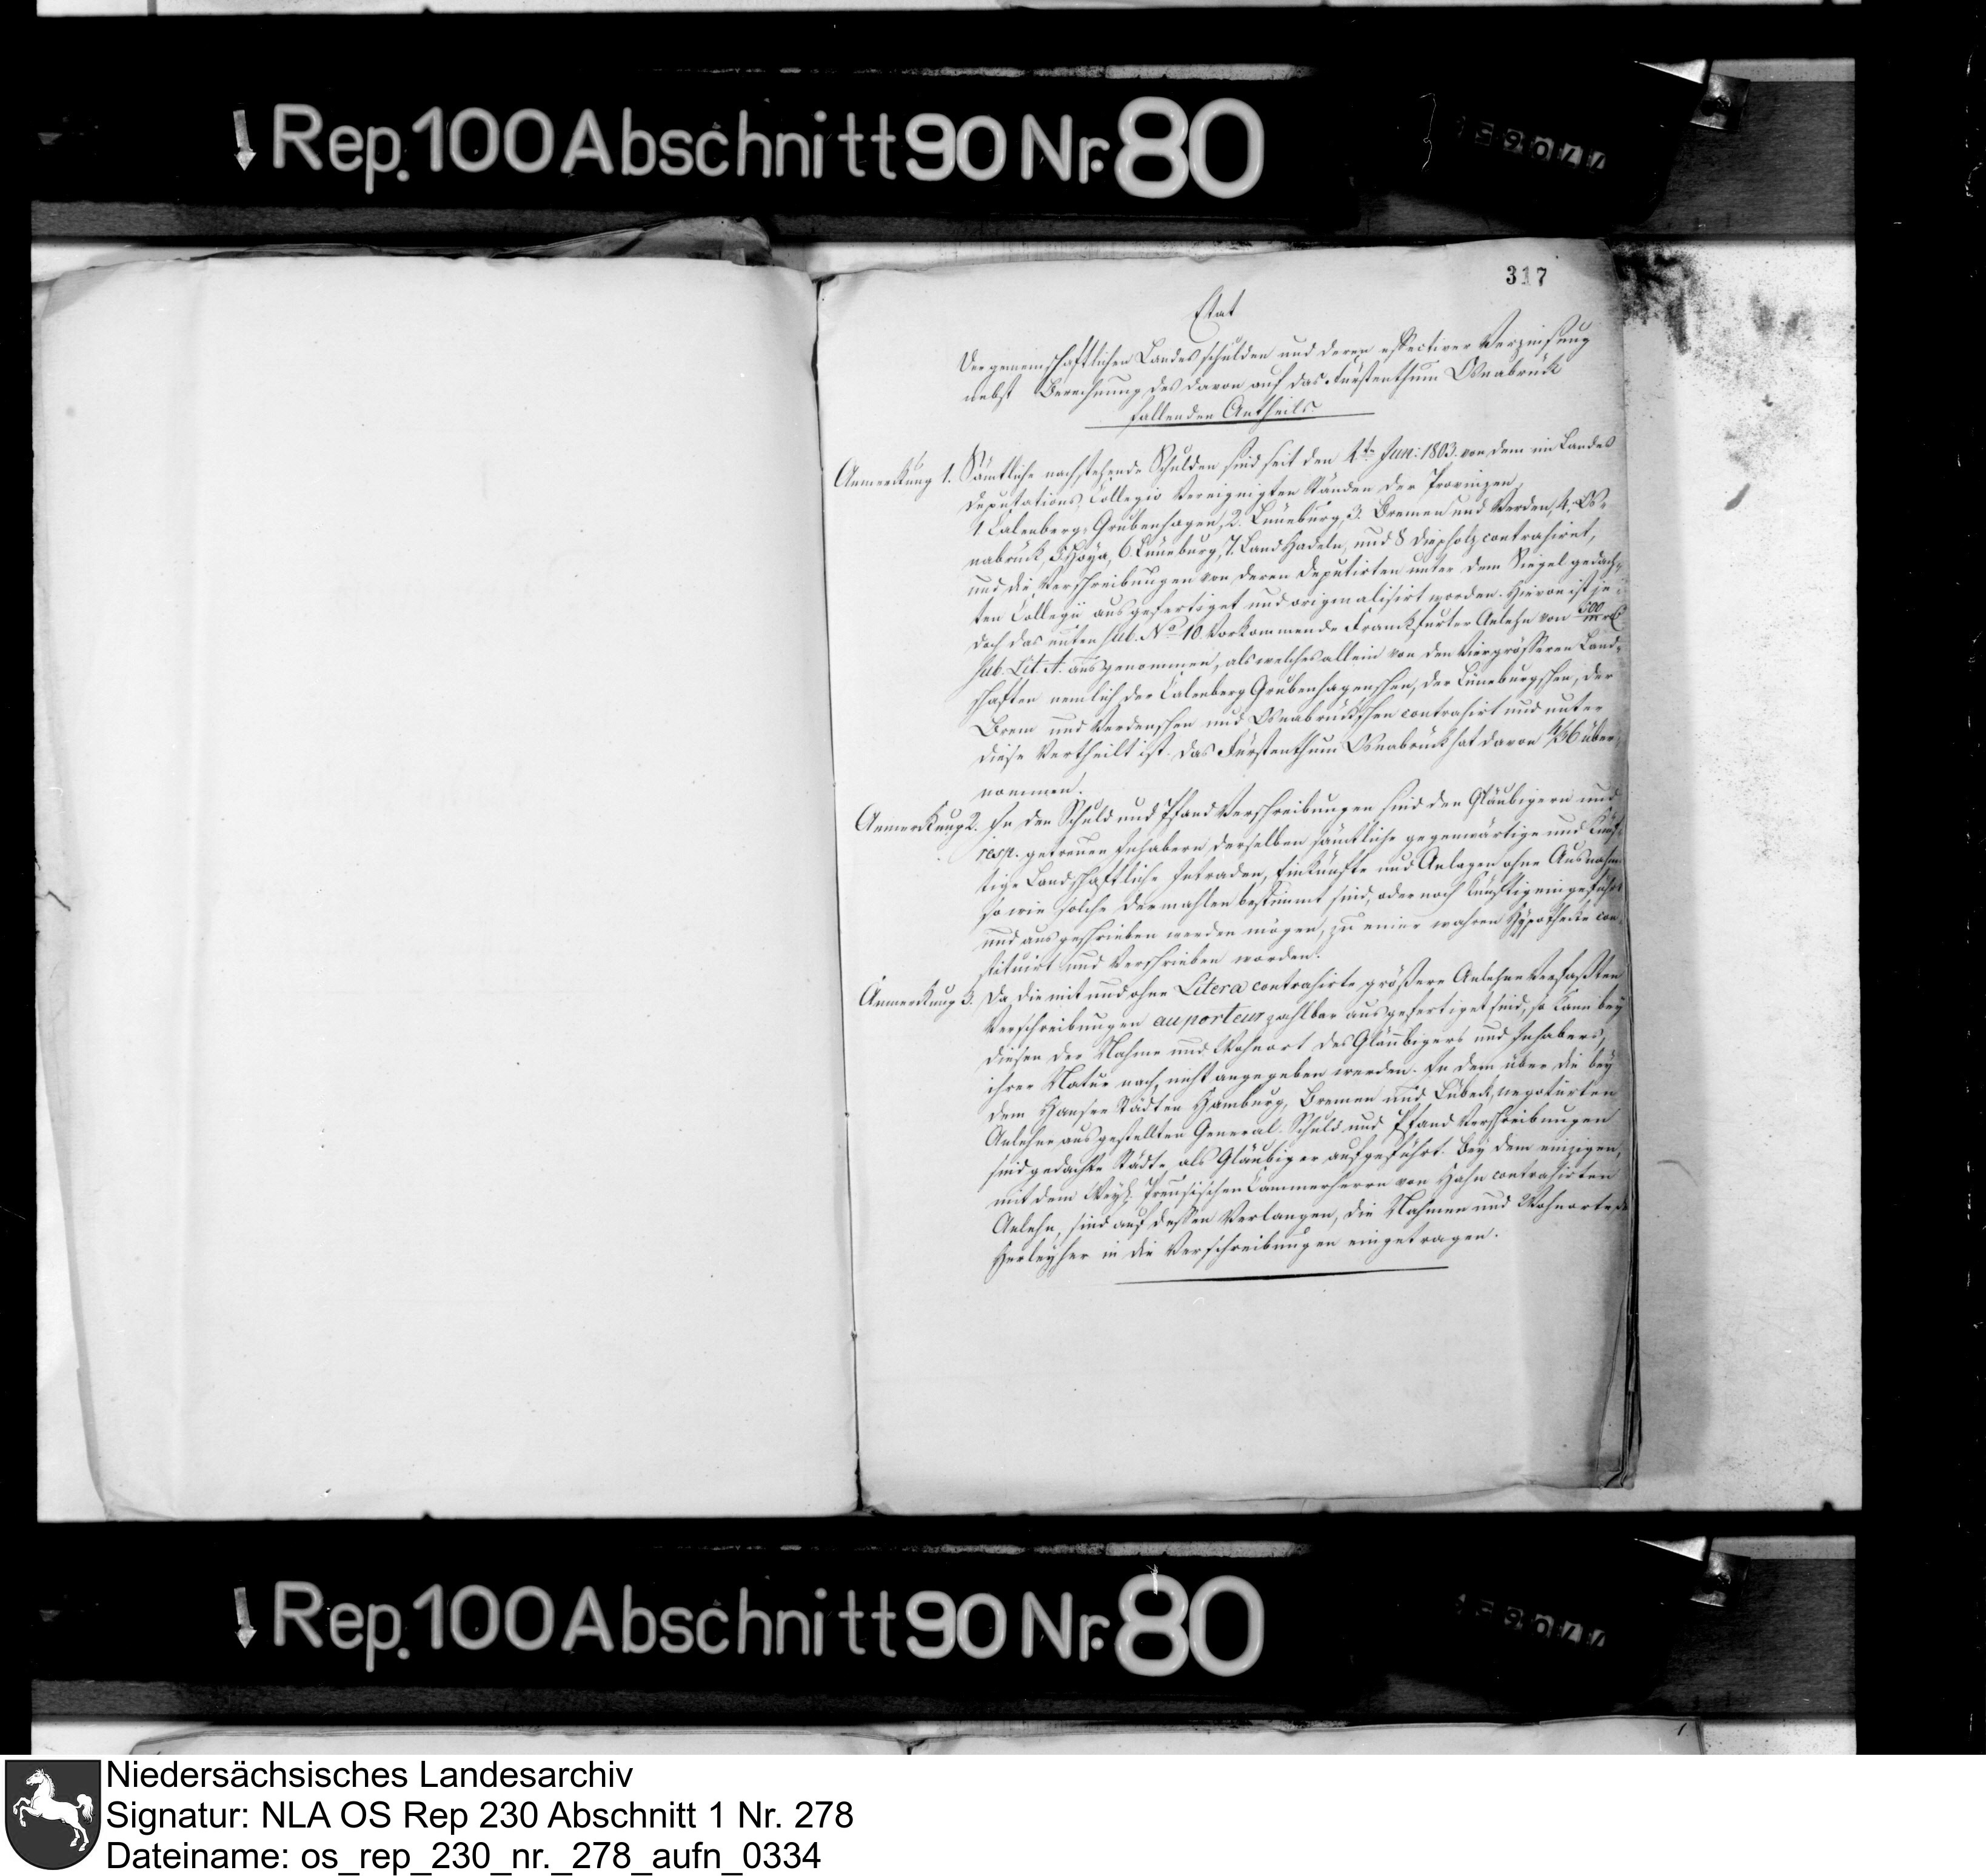 Rep. 100 Abschnitt 90 Nr. 80
317
Etat
Der gemeinschaftlichen Landesschulden und deren effectiver Verzinsung
nebst Berechnung des davon auf das Fürstenthum Osnabrück
fallenden Antheils.
Anmerkung 1. Sämtliche nachstehende Schulden sind seit den 4t. Jun: 1803. von dem im Landes
Deputations Collegio Vereinigten Ständen der Provinzen,
1. Calenberg-Grubenhagen, 2. Lüneburg, 3. Bremen und Verden, 4. Os-
nabrück, 5 Hoya, 6. Lüneburg, 7. Land Hadeln, und 8 Diepholz contrahiret,
und die Verschreibungen von deren Deputirten unter dem Siegel gedach-
ten Collegii ausgefertiget und originalisirt worden. Hievon ist je-
doch das unten sub. No 10. Vorkommende Franckfurter Anlehn von
sub. Lit. A. ausgenommen, als welches allein von den Viergrösseren Land-
schaften nemlich der Calenberg Grubenhagenschen, der Lüneburgschen, der
Brem und Verdenschen und Osnabrückschen contrahirt und unter
diese Vertheilt ist. Das Fürstenthum Osnabrück hat davon über-
nommen.
Anmerkung 2. In den Schuld und Pfand Verschreibungen sind den Gläubigern und
resp. getreuen Inhabern derselben sämtliche gegenwärtige und künf-
tige Landschaftliche Intraden, Einkünfte und Anlagen ohne Ausnahm
so wie solche dermahlen bestimmt sind, oder noch künftig eingeführt
und ausgeschrieben werden mögen, zu einer wahren Hypotheke con-
stituirt und Verschrieben worden.
Anmerkung 3. Da die mit und ohne Litera contrahirte größere Anlehne Verfaßten
Verschreibungen au porteur zahlbar ausgefertiget sind, so kann bey
diesen der Nahme und Wohnort des Gläubigers und Inhabers,
ihrer Natur nach, nicht angegeben werden. In dem über die bey
dem Hansee Städten Hamburg, Bremen und Lübeck, negotiirten
Anlehne ausgestellten General-Schuld und Pfand Verschreibungen
sind gedachte Städte als Gläubiger aufgeführt. Bey dem einzigen,
mit dem Preusischen Cammerherrn von Hahn contrahirten
Anlehn, sind auf dessen Verlangen, die Nahmen und Wohnorte
in die Verschreibungen eingetragen.
Rep. 100 Abschnitt 90 Nr. 80
Niedersächsisches Landesarchiv
Signatur: NLA OS Rep 230 Abschnitt 1 Nr. 278
Dateiname: os_rep_230_nr._278_aufn_0334